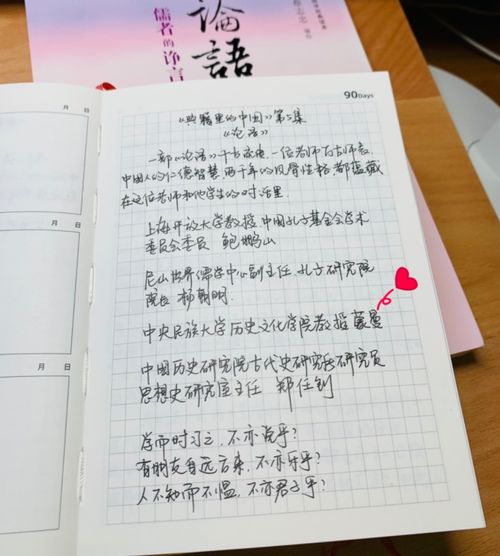 論語
儒者的诤言
蔡志忠 编绘
月 日
月 日
90Days
《典籍里的中国》第5集
《论语》
一部《论语》千古流传，一位老师万古师表，
中国人的仁德智慧，两千年的风骨性格，都蕴藏
在这位老师和他学生的对话里.
上海开放大学教授 中国孔子基金会学术
委员会委员 鲍鹏山
尼山世界儒学中心副主任、孔子研究院
院长 杨朝明.
中央民族大学历史文化学院教授 蒙曼
中国历史研究院古代史研究所研究员
思想史研究室主任 郑任钊
学而时习之，不亦说乎？
有朋友自远方来，不亦乐乎？
人不知而不愠，不亦君子乎？